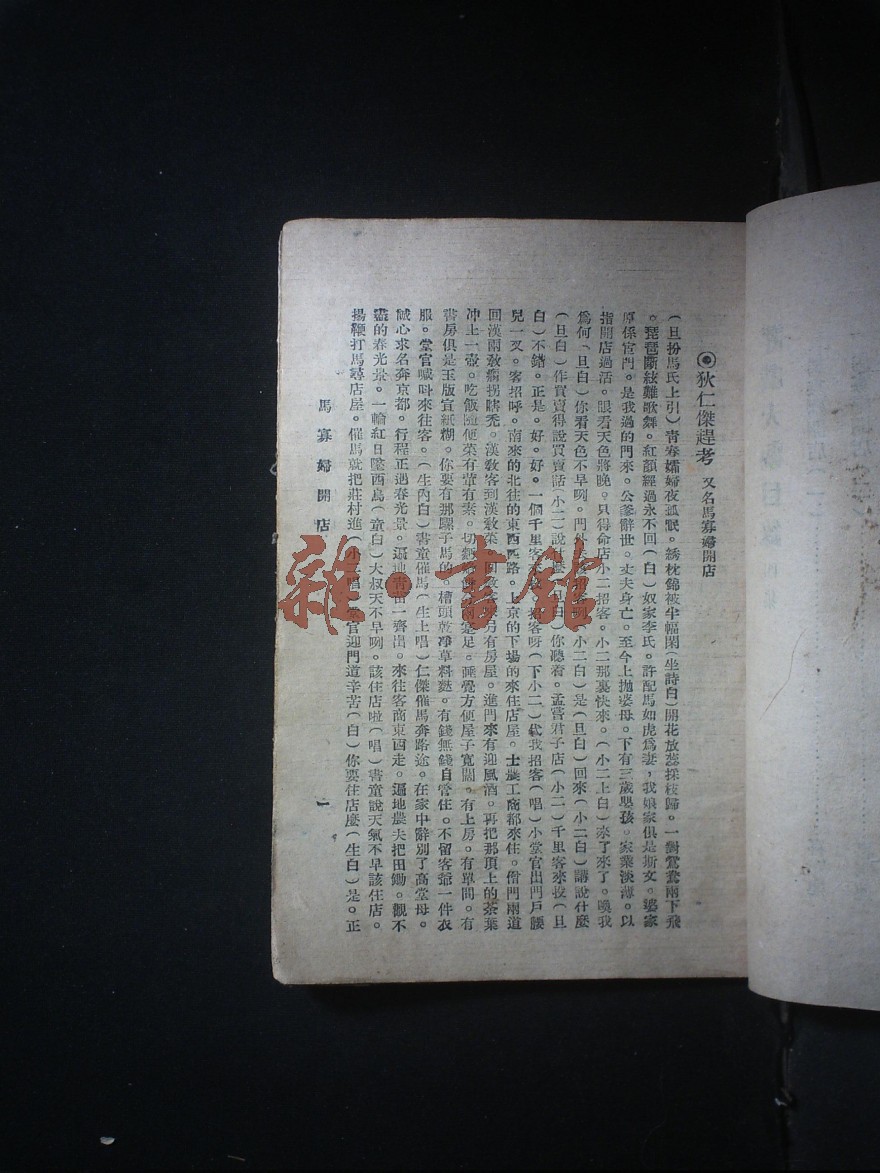 ◉狄仁傑趕考 又名馬寡婦開店
(旦扮馬氏上引)青春孀婦夜孤眠。綉枕錦被半幅閑(坐詩白)開花放蕊採枝歸。一對鴛鴦兩下飛
。琵琶斷絃難歌舞。紅顏經過永不回(白)奴家李氏。許配馬如虎爲妻,我娘家俱是斯文。婆家
原係官門。是我過的門來。公爹辭世。丈夫身亡。至今上拋婆母。下有三歲嬰孩。家業淡薄。以
指開店過活。眼看天色將晚。只得命店小二招客。小二那裏快來。(小二上白)來了來了。喚我
爲何(旦白)你看天色不早咧。門外招客咧(小二白)是(旦白)回來(小二白)講說什麼
(旦白)作買賣得說買賣話(小二)說什麼(旦白)你聽着。孟嘗君子店(小二)千里客來投(旦
白)不錯。正是。好。好。一個千里客來投。招客呀(下小二)代我招客(唱)小堂官出門戶腰
兒一叉。客招呼。南來的北往的東西四路。上京的下場的來住店屋。士農工商都來住。僧門兩道
回漢兩教瘸拐瞎禿。漢教客到漢教菜。回教客另有房屋。進門來有迎風酒。再把那頂上的茶葉
冲上一壺。吃飯隨便菜有葷有素。足。睡覺方便屋子寬闊。有上房。有單間。有
書房俱是玉版宣紙糊。你要有那騾子馬的。槽頭乾凈草料麩。有錢無錢自管住。不留客爺一件衣
服。堂官喊叫來往客。(生內白)書童催馬(生上唱)仁傑催馬奔路途。在家中辭別了高堂母。
誠心求名奔京都。行程正遇春光景。遍地青苗一齊出。來往客商東西走。遍地農夫把田鋤。觀不
盡的春光景。一輪紅日墜西烏(童白)大叔天不早咧。該住店啦(唱)書童說天氣不早該住店。
揚鞭打馬尋店屋。催馬就把莊村進(小唱)堂官迎門道辛苦(白)你要住店麼(生白)是。正
馬寡婦開店
一
雜·書館